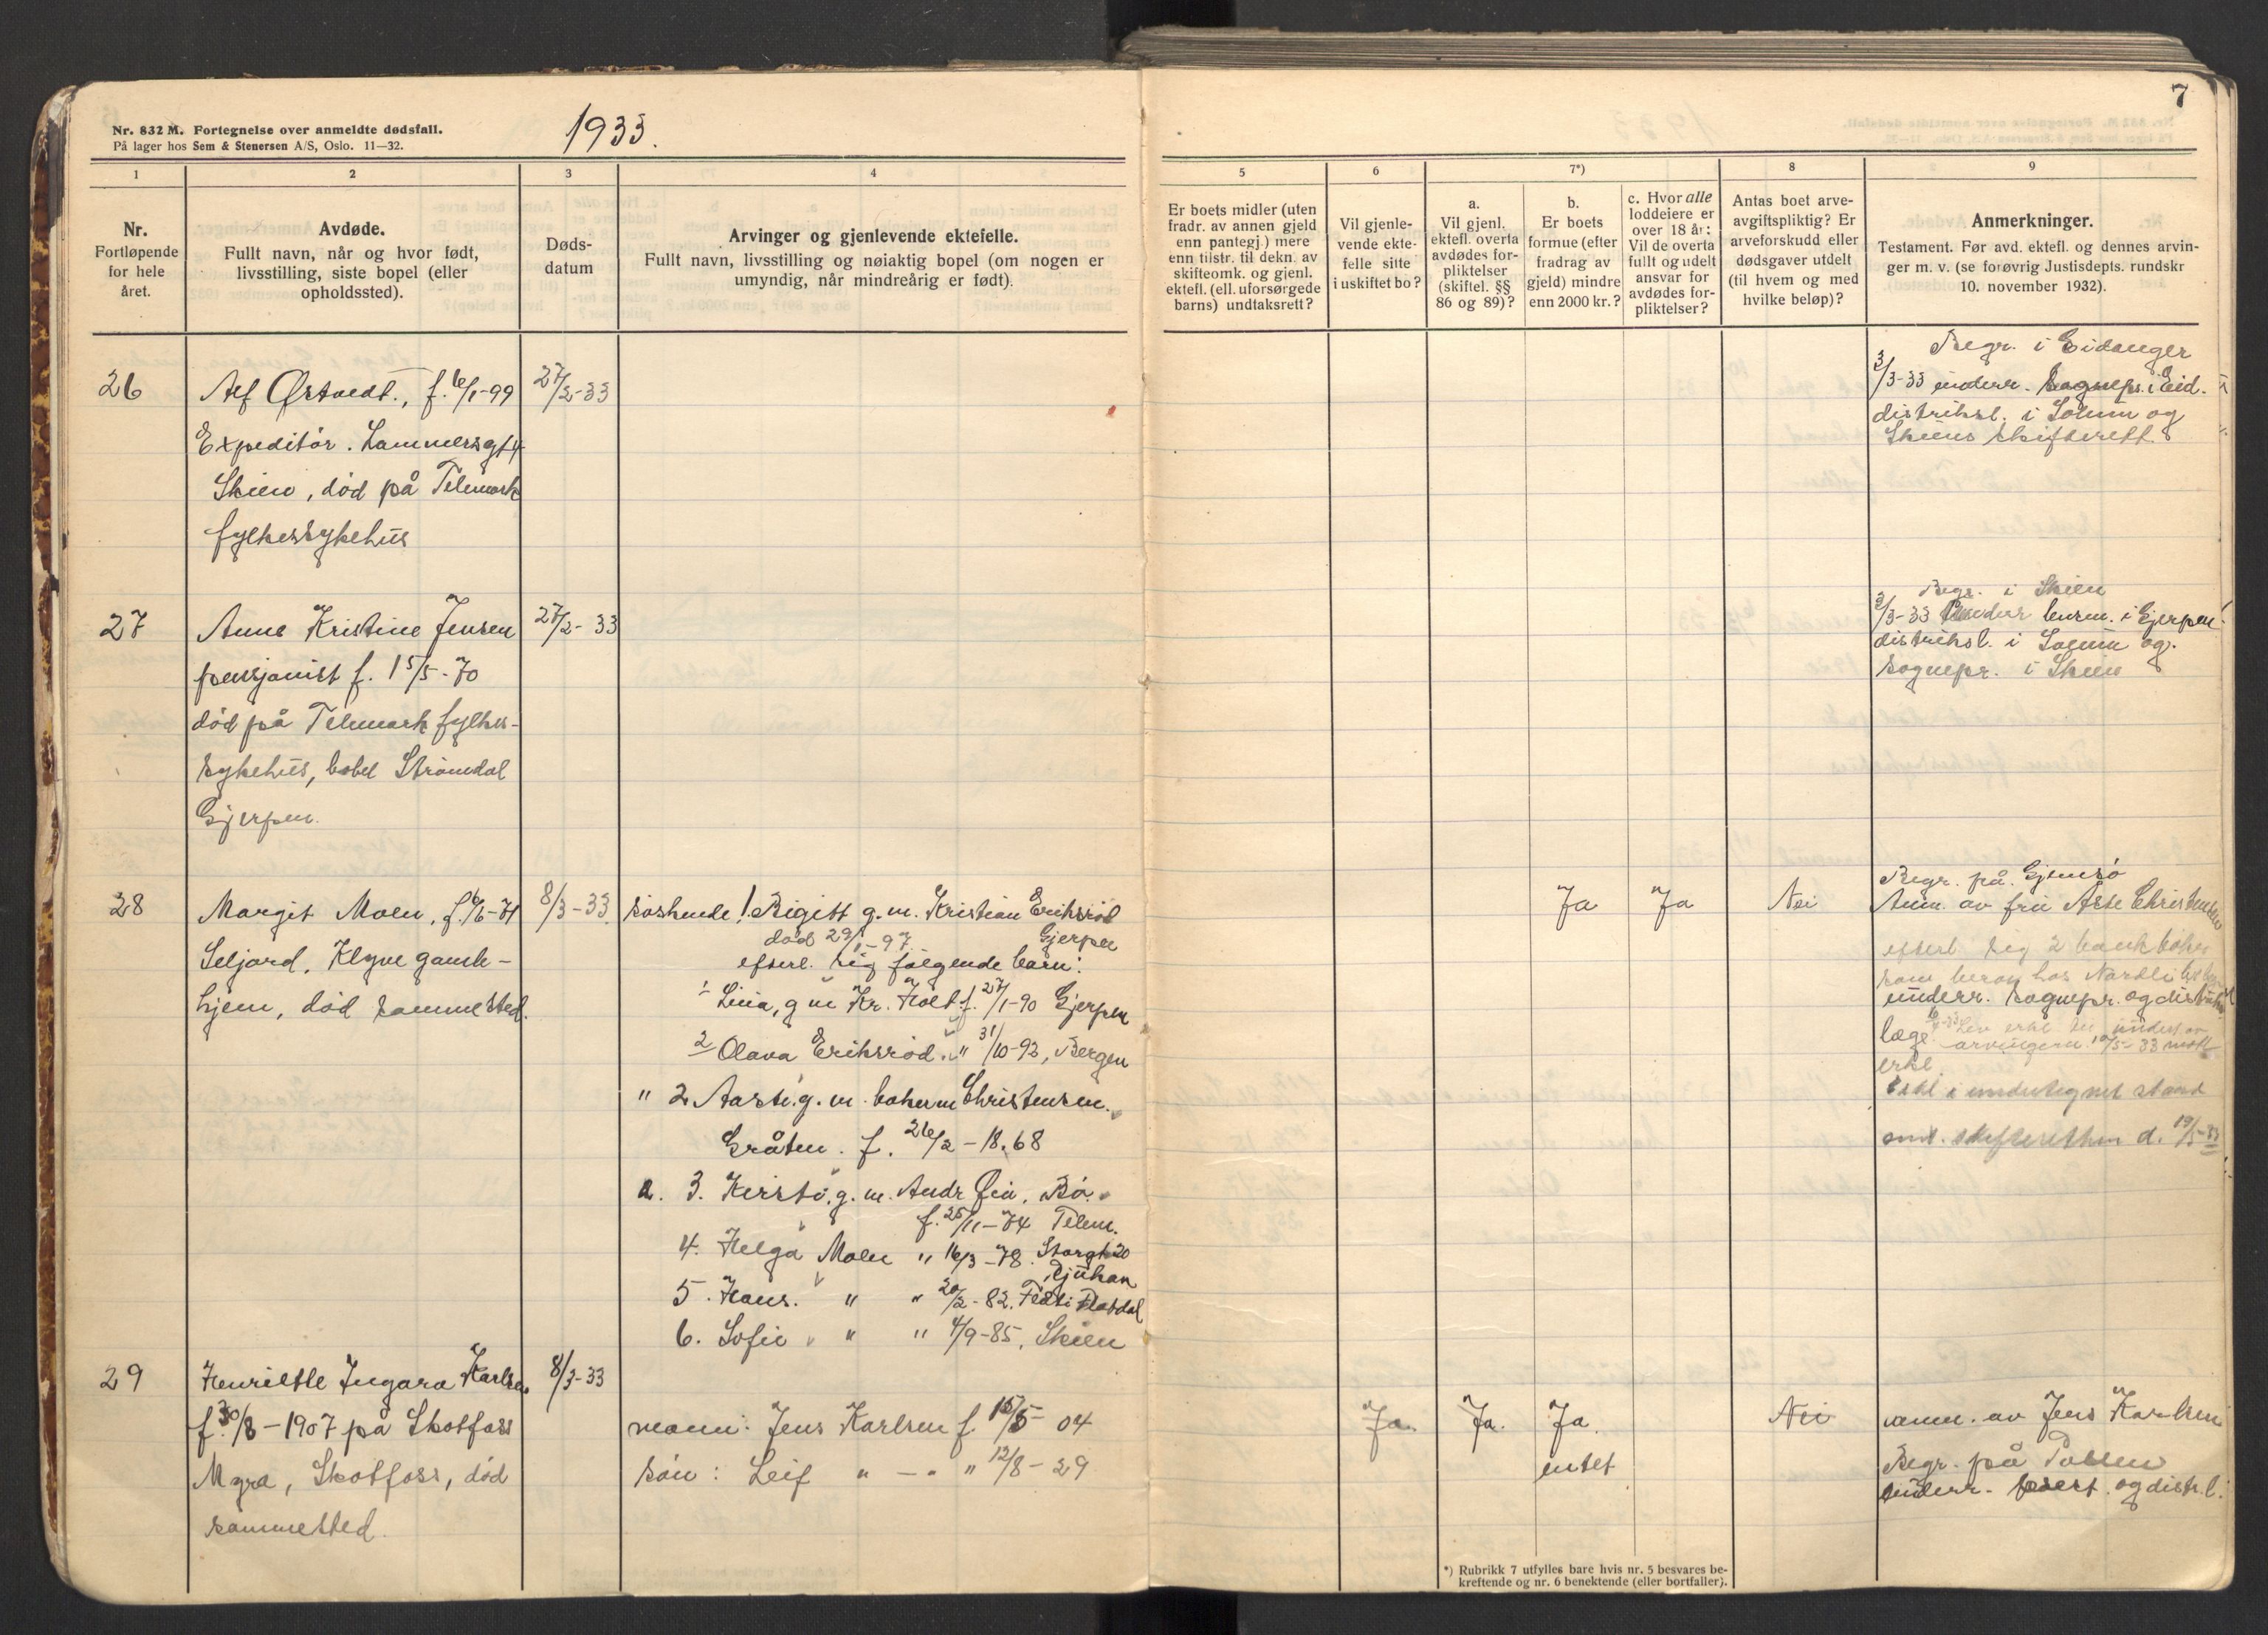 Nr. 832 M. Fortegnelse over anmeldte dødsfall.
På lager hos Sem & Stenersen A/S, Oslo. 11—32.
1933.
7
1
2
3
4
5
6
7*)
8
9
Nr.
Fortløpende
for hele
året.
Avdøde.
Fullt navn, når og hvor født,
livsstilling, siste bopel (eller
opholdssted).
Døds-
datum
Arvinger og gjenlevende ektefelle.
Fullt navn, livsstilling og nøiaktig bopel (om nogen er
umyndig, når mindreårig er født).
Er boets midler (uten
fradr. av annen gjeld
enn pantegj.) mere
enn tilstr. til dekn. av
skifteomk. og gjenl.
ektefl. (ell. uforsørgede
barns) undtaksrett?
Vil gjenle-
vende ekte-
felle sitte
i uskiftet bo?
a.
Vil gjenl.
ektefl. overta
avdødes for-
pliktelser
(skiftel. §§
86 og 89)?
b.
Er boets
formue (efter
fradrag av
gjeld) mindre
enn 2000 kr.?
c. Hvor alle
loddeiere er
over 18 år:
Vil de overta
fullt og udelt
ansvar for
avdødes for-
pliktelser?
Antas boet arve-
avgiftspliktig? Er
arveforskudd eller
dødsgaver utdelt
(til hvem og med
hvilke beløp)?
Anmerkninger.
Testament. Før avd. ektefl. og dennes arvin-
ger m. v. (se forøvrig Justisdepts. rundskr
10. november 1932).
26
Alf Østvedt., f. 6/1-99
Expeditør. Lammersgt 4
Skien, død på Telemark
fylkessykehus
27/2-33
Begr. i Eidanger
3/3-33 underr. sognepr. i Eid.
distriksl. i Solum og
Skiens skifterett
27
Anne Kristine Jensen
pensjonist f. 15/5-70
død på Telemark fylkes-
sykehus, bobel Strömdal
Gjerpen.
27/2-33
Begr. i Skien
3/3-33 underr lensm. i Gjerpen
distriksl. i Solum og.
sognepr. i Skien
28
Margit Moen, f.
Seljord, Klyve gamle-
hjem, død sammested.
8/3-33
söskende! Birgitt g.m. Kristian Eriksröd
död 29/1-97 Gjerpen
efterl. sig følgende barn:
1 Lina, g m Kr. Holt f. 27/1-90 Gjerpen
2 Olava Eriksröd " 31/10-92, Bergen
" 2 Aaste g. m. Christensen.
Gråten. f. 26/2-18.68
3. Kersti g. m. Andr Øia, Bö.
f. 25/11-74 Telem.
4. Helga Moen " 16/3-78. Storgt 20
Rjukan
5. Hans. " " 20/2-82. Flatdal
6. Sofie " " 4/9-85, Skien
Ja
Ja
Nei
Begr. på Gjemsö
Anm. av fru Aste Christensen
efterl. sig 2 bankböker
som beror hos
underr. sognepr. og distrikts
læge
arvingene 10/5-33
erkl.
Erkl i undertegnet stand
skifteretten d. 19/5-33
29
Henriette Ingara Karlsen
f. 30/8-1907 på Skotfoss
Myra, Skotfoss, død
sammested.
8/3-33
mann: Jens Karlsen f. 04
sön: Leif " - " " 12/8-29
Ja.
Ja.
Ja.
intet
Nei
anm. av Jens Karlsen
Begr. på
underr. og distr. l.
*) Rubrikk 7 utfylles bare hvis nr. 5 besvares be-
kreftende og nr. 6 benektende (eller bortfaller).